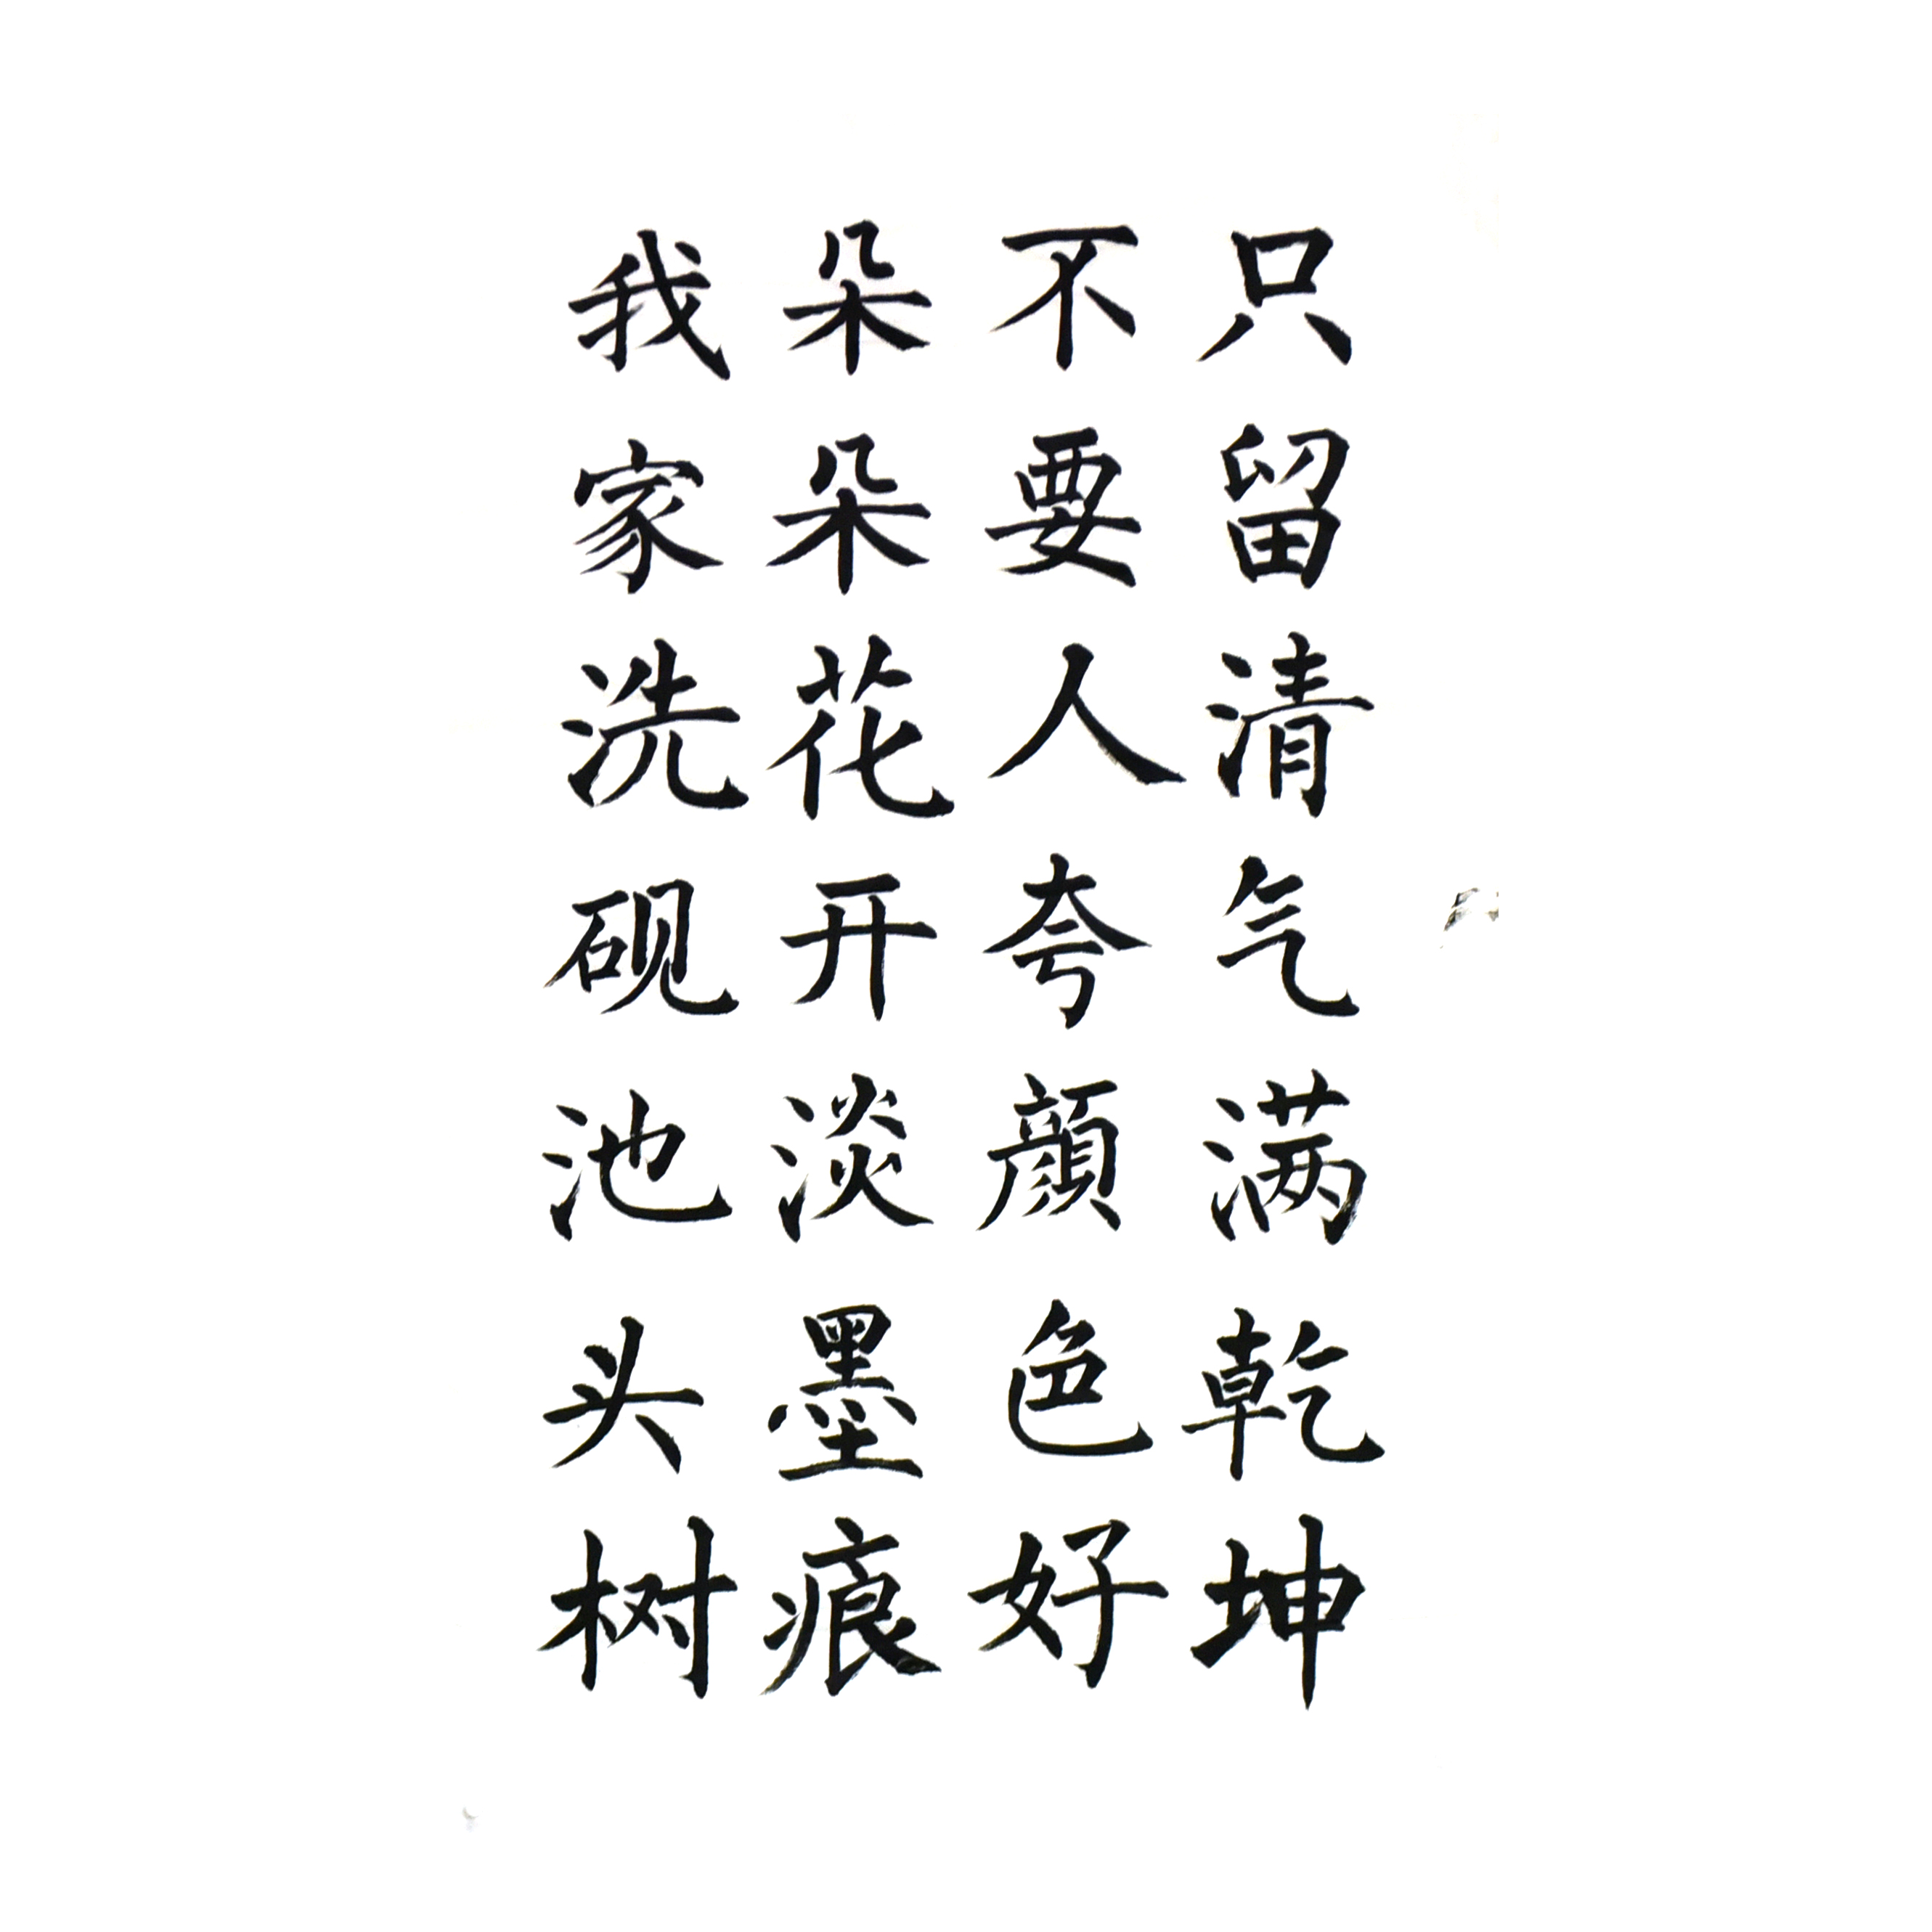 我家洗砚池头树
朵朵花开淡墨痕
不要人夸顔色好
只留清气满乾坤